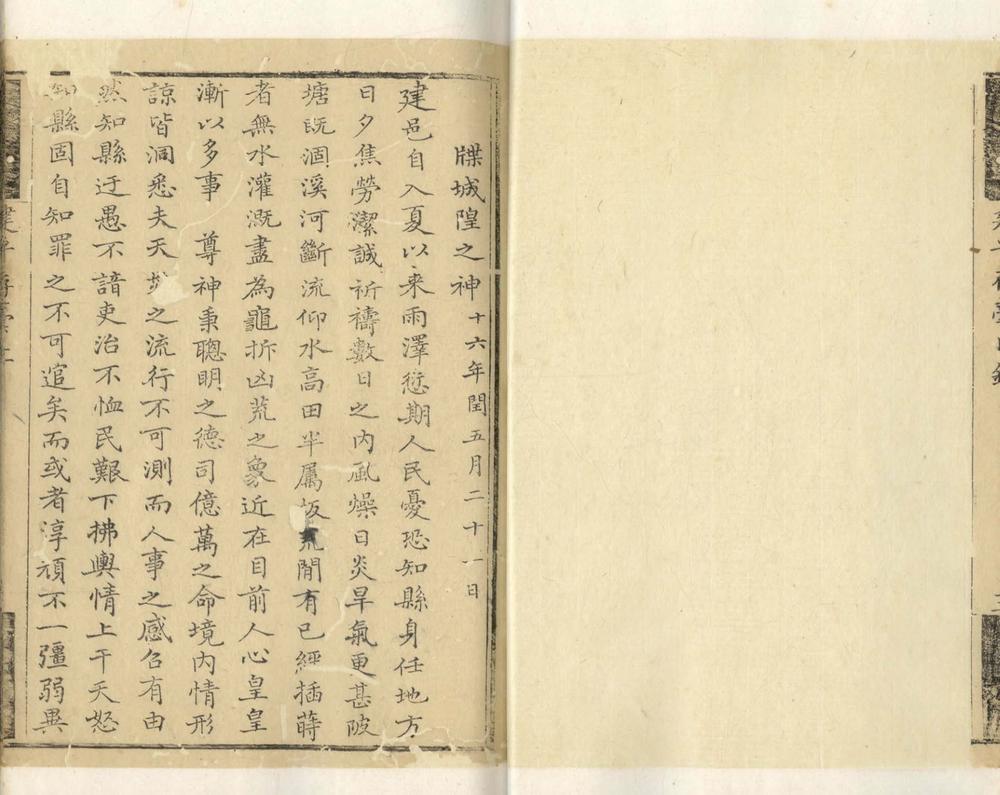 牒城隍之神十六年閏五月二十一日
建邑自入夏以来雨澤愆期人民憂恐知縣身任地方
日夕焦勞潔誠祈禱數日之内風燥日炎旱氣更甚陂
塘既涸溪河斷流仰水高田半屬坂荒間有已經插蒔
者無水灌溉盡為龜拆凶荒之象近在目前人心皇皇
漸以多事　尊神秉聰明之德司億萬之命境内情形
諒皆洞悉夫天之流行不可測而人事之感召有由
然知縣迂愚不諳吏治不恤民艱下拂輿情上干天怒
知縣固自知罪之不可逭矣而或者淳頑不一彊弱異